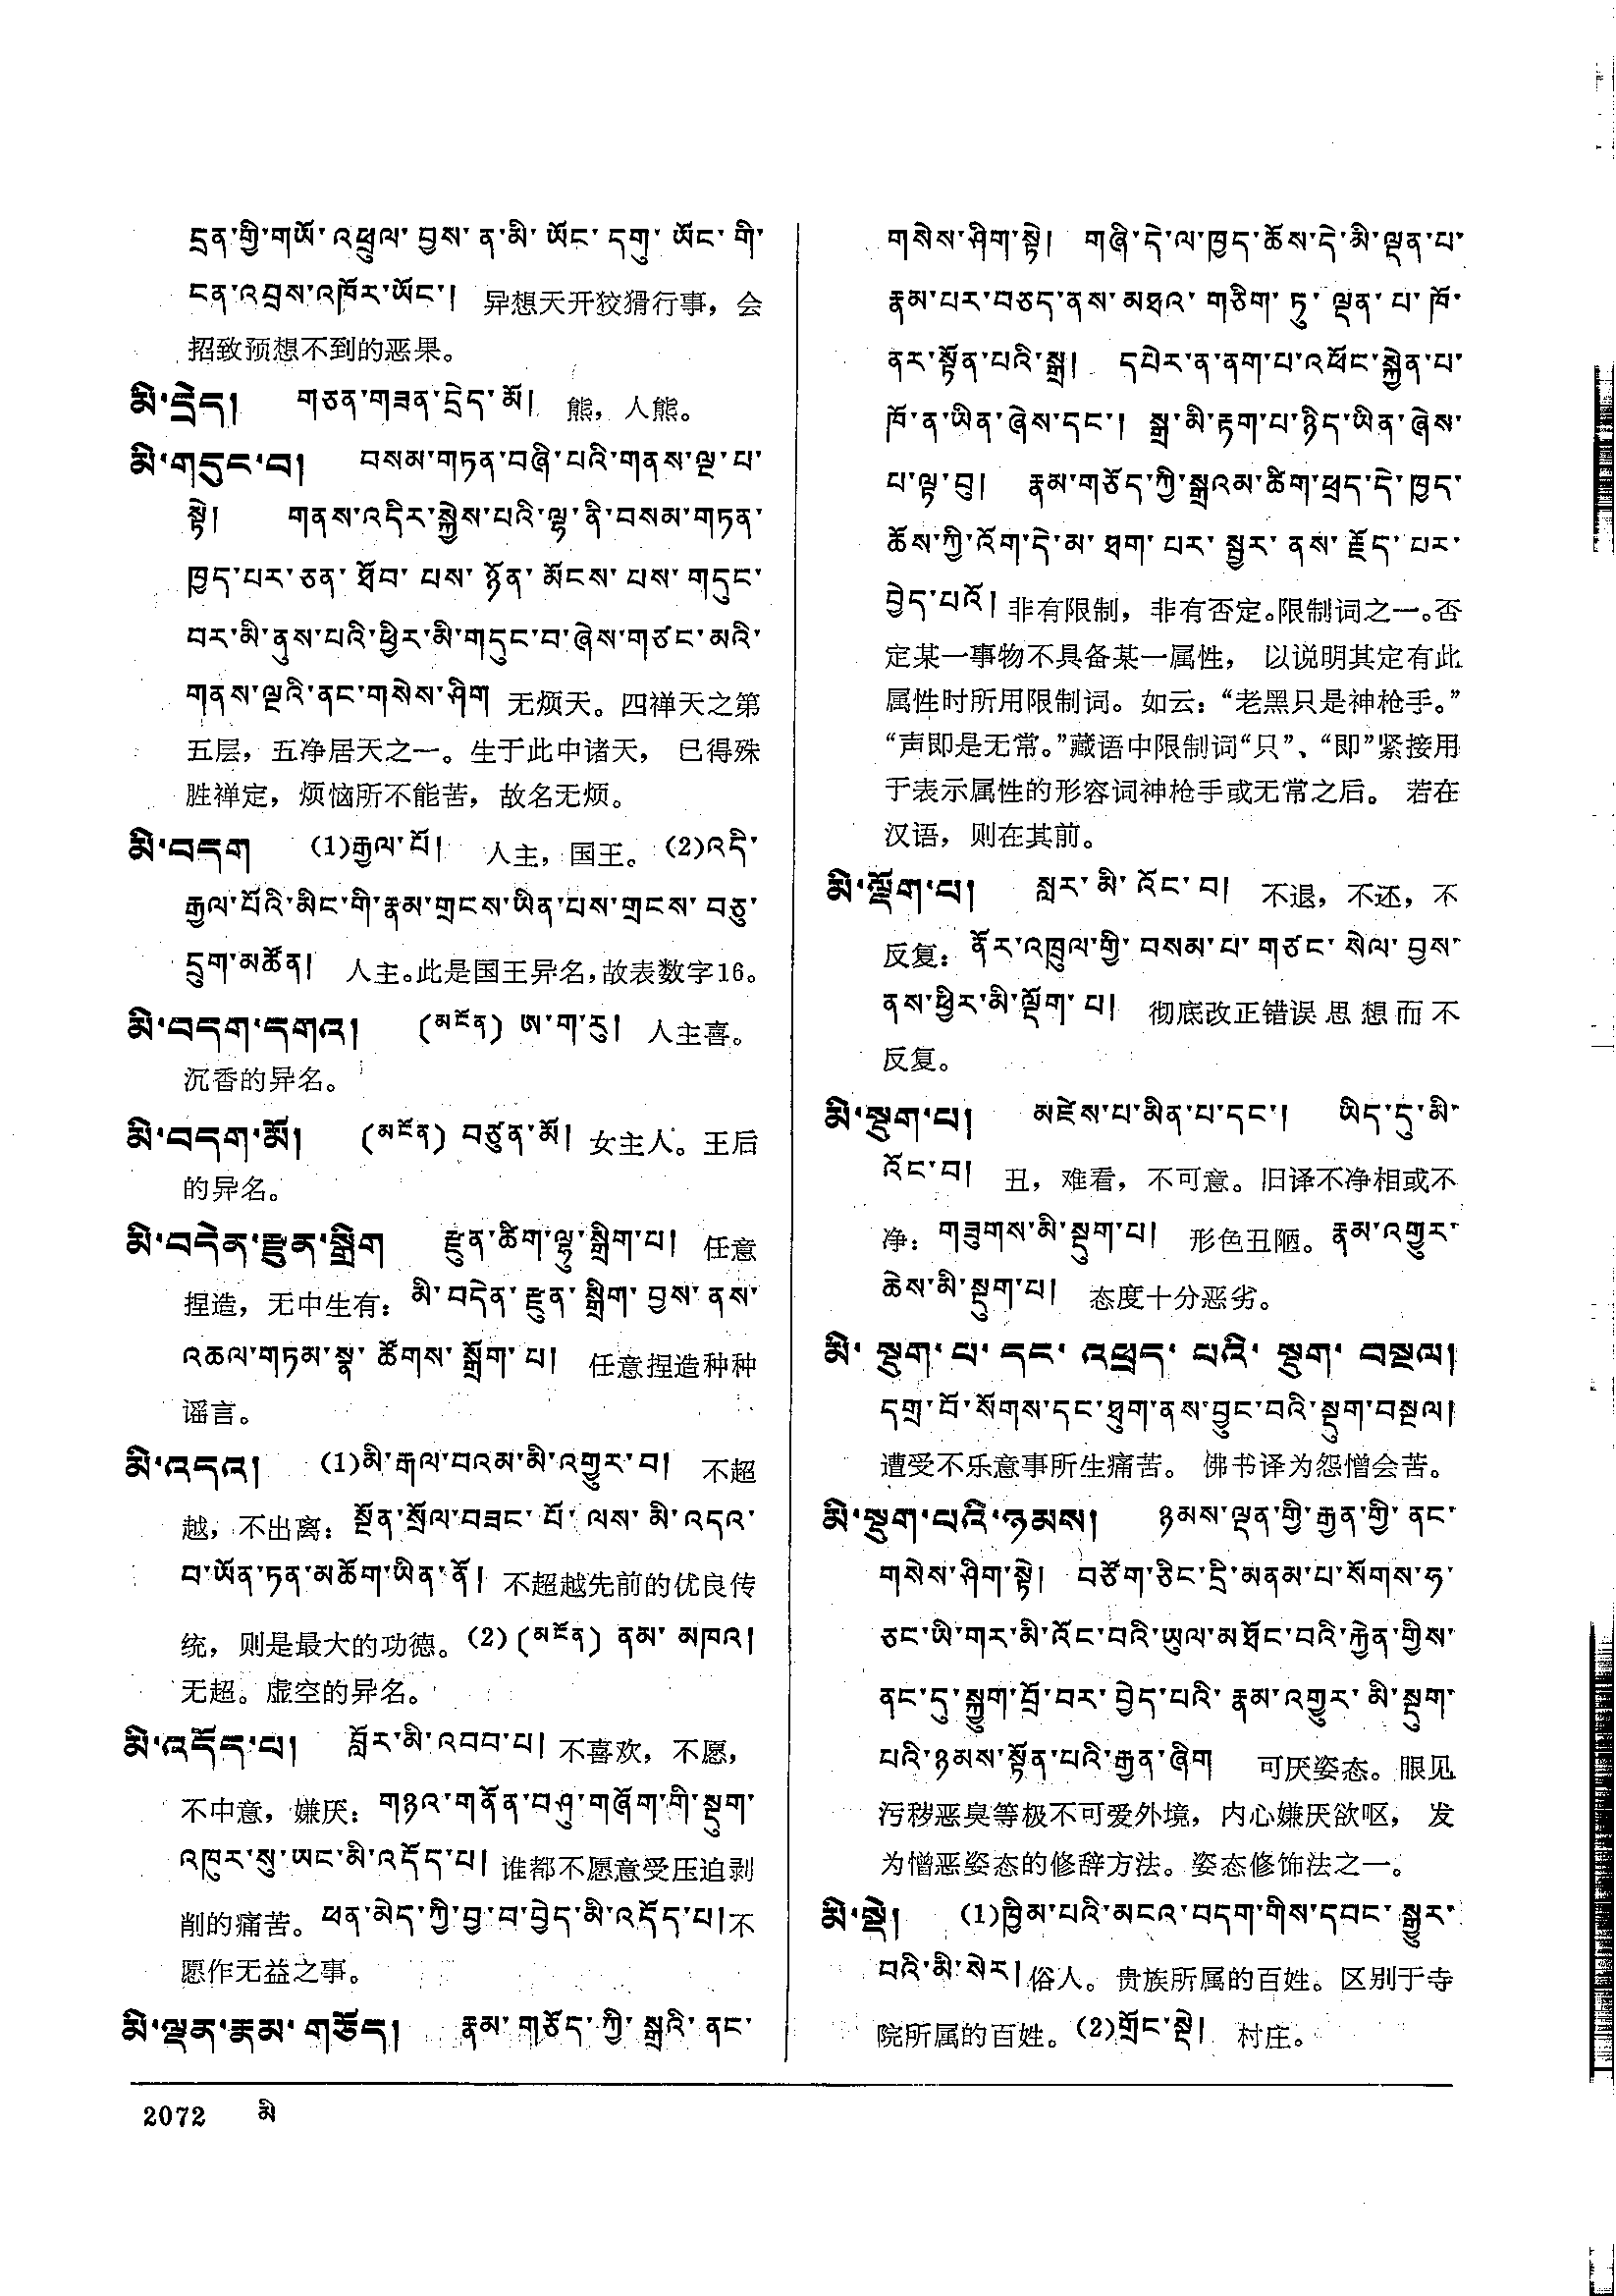 དྲན་གྱི་གཡོ་འཕྲུལ་བྱས་ན་མི་ཡོང་དགུ་ཡོང་གི་
ངན་འབྲས་འཁོར་ཡོང་། 异想天开狡猾行事，会
招致预想不到的恶果。
མི་དྲེད། གཅན་གཟན་དྲེད་མོ། 熊，人熊。
མི་གདུང་བ། བསམ་གཏན་བཞི་པའི་གནས་ལྔ་པ་
སྟེ། གནས་འདིར་སྐྱེས་པའི་ལྷ་ནི་བསམ་གཏན་
ཁྱད་པར་ཅན་ཐོབ་པས་ཉོན་མོངས་པས་གདུང་
བར་མི་ནུས་པའི་ཕྱིར་མི་གདུང་བ་ཞེས་གཙང་མའི་
གནས་ལྔའི་ནང་གསེས་ཤིག 无烦天。四禅天之第
五层，五净居天之一。生于此中诸天，已得殊
胜禅定，烦恼所不能苦，故名无烦。
མི་བདག (1)རྒྱལ་པོ། 人主，国王。(2)འདི་
རྒྱལ་པོའི་མིང་གི་རྣམ་གྲངས་ཡིན་པས་གྲངས་བཅུ་
དྲུག་མཚོན། 人主。此是国王异名，故表数字16。
མི་བདག་དགའ། (མངོན) ཨ་ག་རུ། 人主喜。
沉香的异名。
མི་བདག་མོ། (མངོན) བཙུན་མོ། 女主人。王后
的异名。
མི་བདེན་རྫུན་སྒྲིག རྫུན་ཚིག་ལྷུ་སྒྲིག་པ། 任意
捏造，无中生有：མི་བདེན་རྫུན་སྒྲིག་བྱས་ནས་
འཆལ་གཏམ་སྣ་ཚོགས་སྒྲོག་པ། 任意捏造种种
谣言。
མི་འདའ། (1)མི་རྒལ་བའམ་མི་འགྱུར་བ། 不超
越，不出离：སྔོན་སྲོལ་བཟང་པོ་ལས་མི་འདའ་
བ་ཡོན་ཏན་མཆོག་ཡིན་ནོ། 不超越先前的优良传
统，则是最大的功德。(2)(མངོན) ནམ་མཁའ།
无超。虚空的异名。
མི་འདོད་པ། བློར་མི་འབབ་པ། 不喜欢，不愿，
不中意，嫌厌：གཉའ་གནོན་བཤུ་གཞོག་གི་སྡུག་
འཁུར་སུ་ཡང་མི་འདོད་པ། 谁都不愿意受压迫剥
削的痛苦。ཕན་མེད་ཀྱི་བྱ་བ་བྱེད་མི་འདོད་པ། 不
愿作无益之事。
མི་ལྡན་རྣམ་གཅོད། རྣམ་གཅོད་ཀྱི་སྒྲའི་ནང་
གསེས་ཤིག་སྟེ། གཞི་དེ་ལ་ཁྱད་ཆོས་དེ་མི་ལྡན་པ་
རྣམ་པར་བཅད་ནས་མཐའ་གཅིག་ཏུ་ལྡན་པ་ཁོ་
ནར་སྟོན་པའི་སྒྲ། དཔེར་ན་ནག་པ་འཕོང་སྐྱེན་པ་
ཁོ་ན་ཡིན་ཞེས་དང་། སྒྲ་མི་རྟག་པ་ཉིད་ཡིན་ཞེས་
པ་ལྟ་བུ། རྣམ་གཅོད་ཀྱི་སྒྲའམ་ཚིག་ཕྲད་དེ་ཁྱད་
ཆོས་ཀྱི་འོག་དེ་མ་ཐག་པར་སྦྱར་ནས་རྗོད་པར་
བྱེད་པའོ། 非有限制，非有否定。限制词之一。否
定某一事物不具备某一属性，以说明其定有此
属性时所用限制词。如云：“老黑只是神枪手。”
“声即是无常。”藏语中限制词“只”、“即”紧接用
于表示属性的形容词神枪手或无常之后。若在
汉语，则在其前。
མི་ལྡོག་པ། སླར་མི་འོང་བ། 不退，不还，不
反复：ནོར་འཁྲུལ་གྱི་བསམ་པ་གཙང་སེལ་བྱས་
ནས་ཕྱིར་མི་ལྡོག་པ། 彻底改正错误思想而不
反复。
མི་སྡུག་པ། མཛེས་པ་མིན་པ་དང་། ཡིད་དུ་མི་
འོང་བ། 丑，难看，不可意。旧译不净相或不
净：གཟུགས་མི་སྡུག་པ། 形色丑陋。རྣམ་འགྱུར་
ཆེས་མི་སྡུག་པ། 态度十分恶劣。
མི་སྡུག་པ་དང་འཕྲད་པའི་སྡུག་བསྔལ།
དགྲ་བོ་སོགས་དང་ཐུག་ནས་བྱུང་བའི་སྡུག་བསྔལ།
遭受不乐意事所生痛苦。佛书译为怨憎会苦。
མི་སྡུག་པའི་ཉམས། ཉམས་ལྡན་གྱི་རྒྱན་གྱི་ནང་
གསེས་ཤིག་སྟེ། བཙོག་ཅིང་དྲི་མནམ་པ་སོགས་ཧ་
ཅང་ཡི་གར་མི་འོང་བའི་ཡུལ་མཐོང་བའི་རྐྱེན་གྱིས་
ནང་དུ་སྐྱུག་བྲོ་བར་བྱེད་པའི་རྣམ་འགྱུར་མི་སྡུག་
པའི་ཉམས་སྟོན་པའི་རྒྱན་ཞིག 可厌姿态。眼见
污秽恶臭等极不可爱外境，内心嫌厌欲呕，发
为憎恶姿态的修辞方法。姿态修饰法之一。
མི་སྡེ། (1)ཁྱིམ་པའི་མངའ་བདག་གིས་དབང་སྒྱུར་
བའི་མི་སེར། 俗人。贵族所属的百姓。区别于寺
院所属的百姓。(2)གྲོང་སྡེ། 村庄。
2072 མི